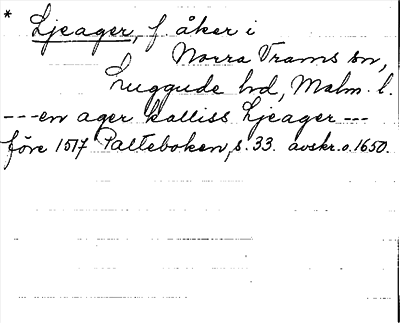 * Ljeager, f åker i
Norra Vrams sn,
Luggude hd, Malm. l.
---en ager kalliss Ljeager---
före 1517 Palteboken, s. 33. avskr. o. 1650.